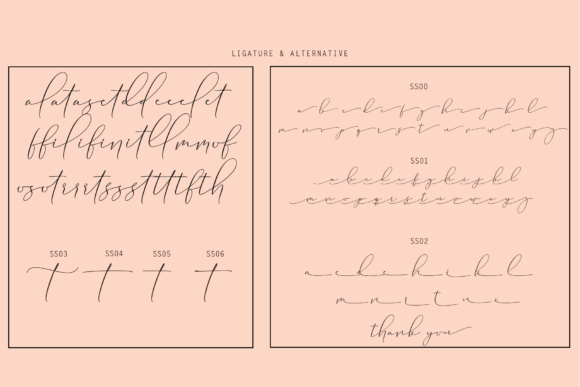 LIGATURE & ALTERNATIVE
alatasctddeeelet
ffilifinitllmmof
osotrrrtssstttlfth
SS03 SS04 SS05 SS06
t t t t
SS00
a b c d e f g h i j k l
m n o p q r s t u v w x y z
SS01
a b c d e f g h i j k l
m n o p q r s t u v w x y z
SS02
a c d e h i k l
m n r t u x
thank you